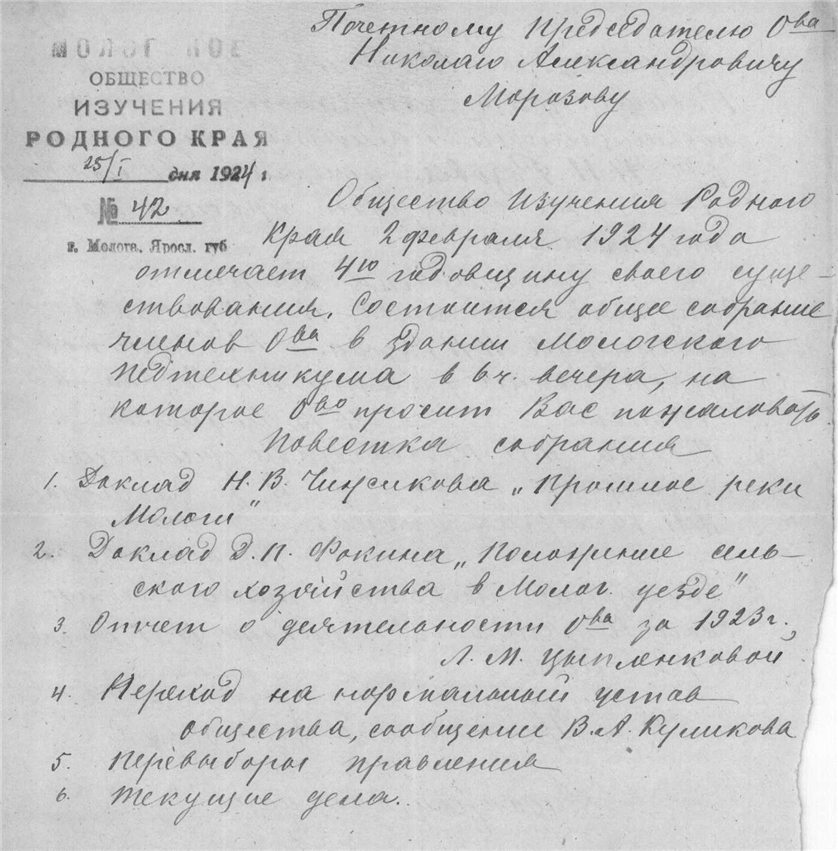 Почетному Председателю О<sup>ва</sup>
Николаю Александровичу
Морозову
МОЛОГСКОЕ
ОБЩЕСТВО
ИЗУЧЕНИЯ
РОДНОГО КРАЯ
25/I дня 1924 г
№ 42
г. Молога, Яросл. губ
Общество Изучения Родного
Края 2 февраля 1924 года
отмечает 4<sup>ю</sup> годовщину своего суще-
ствования. Состоится общее собрание
членов О<sup>ва</sup> в здании Мологского
Педтехникума в 6 ч. вечера, на
которое О<sup>во</sup> просит Вас пожаловать.
Повестка собрания
1. Доклад Н. В. Чижикова „Прошлое реки
Мологи"
2. Доклад Д. П. Фокина „Положение сель-
ского хозяйства в Молог. уезде"
3. Отчет о деятельности О<sup>ва</sup> за 1923 г.,
Л. М. Цыпленковой
4. Переход на нормальный устав
общества, сообщении В. А. Куликова
5. Перевыборы правления
6. Текущие дела.